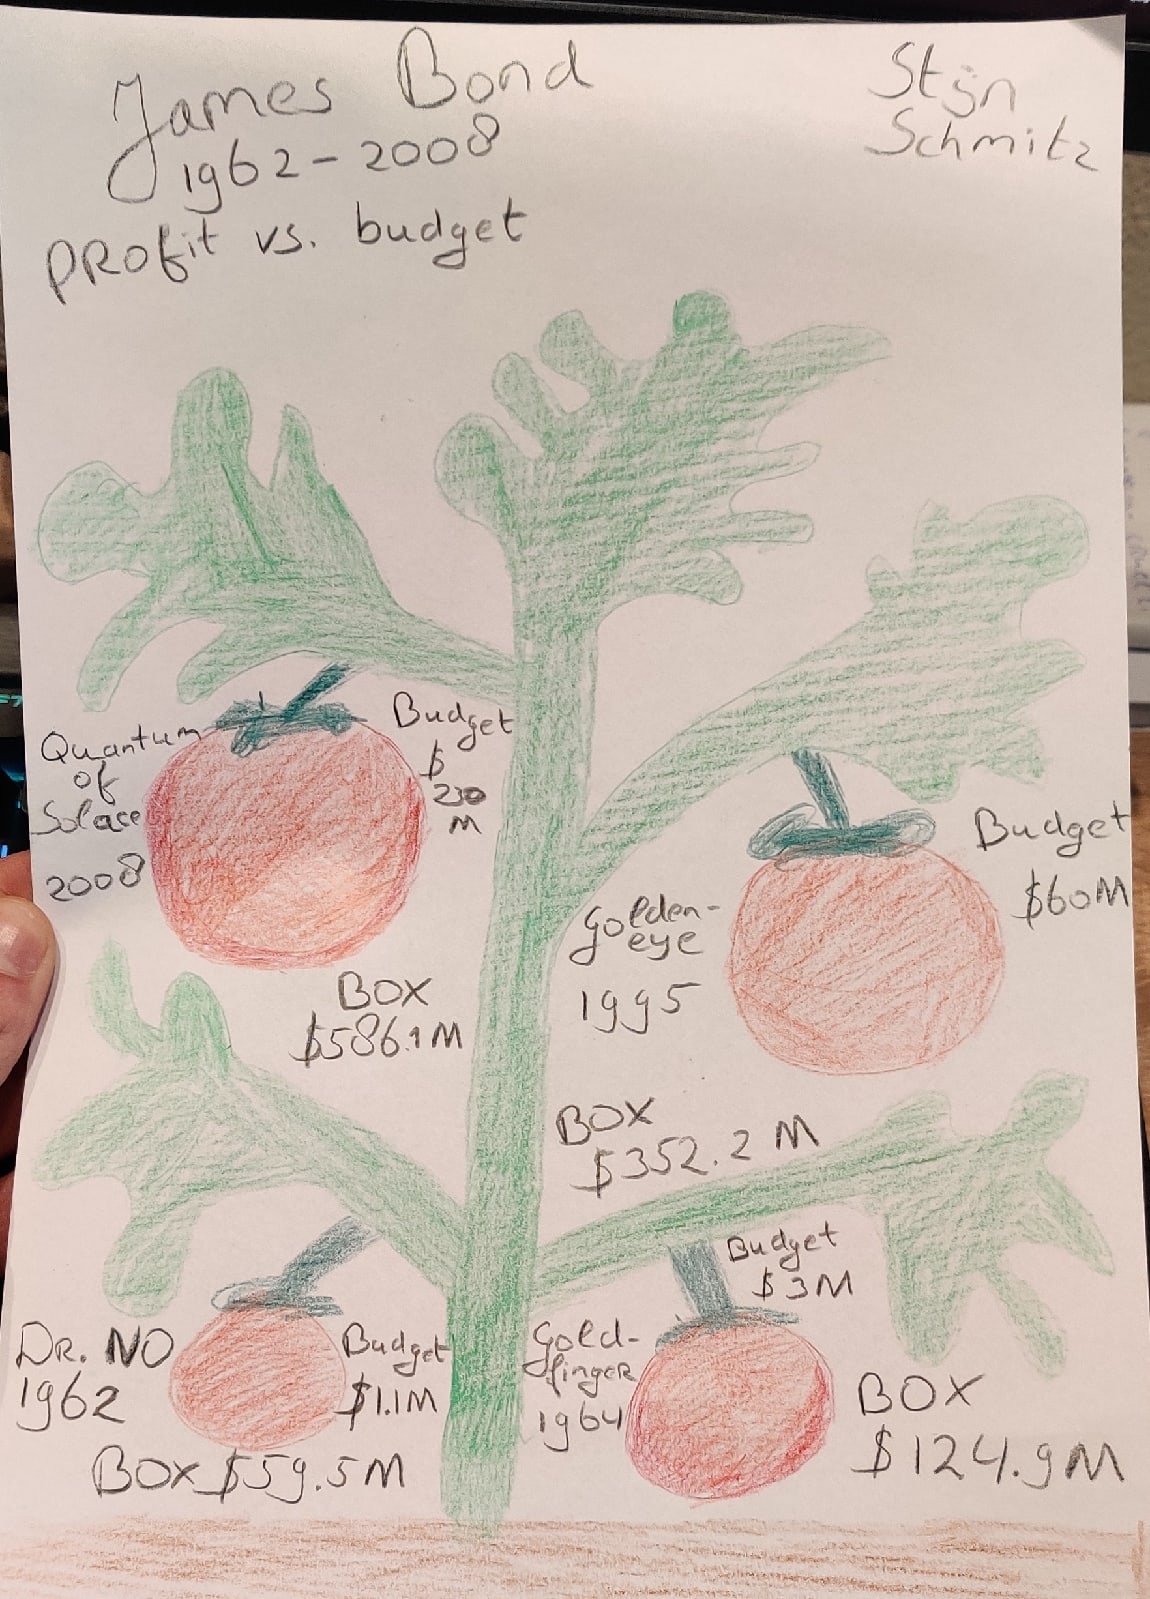 James Bond
1962-2008
PROfit vs. budget
Stijn
Schmitz
Quantum
of
Solace
2008
Budget
$
230
M
BOX
$586.1M
Golden-
eye
1995
Budget
$60M
BOX
$352.2 M
DR. NO
1962
Budget
$1.1M
BOX $59.5M
Gold-
finger
1964
Budget
$3M
BOX
$124.9M